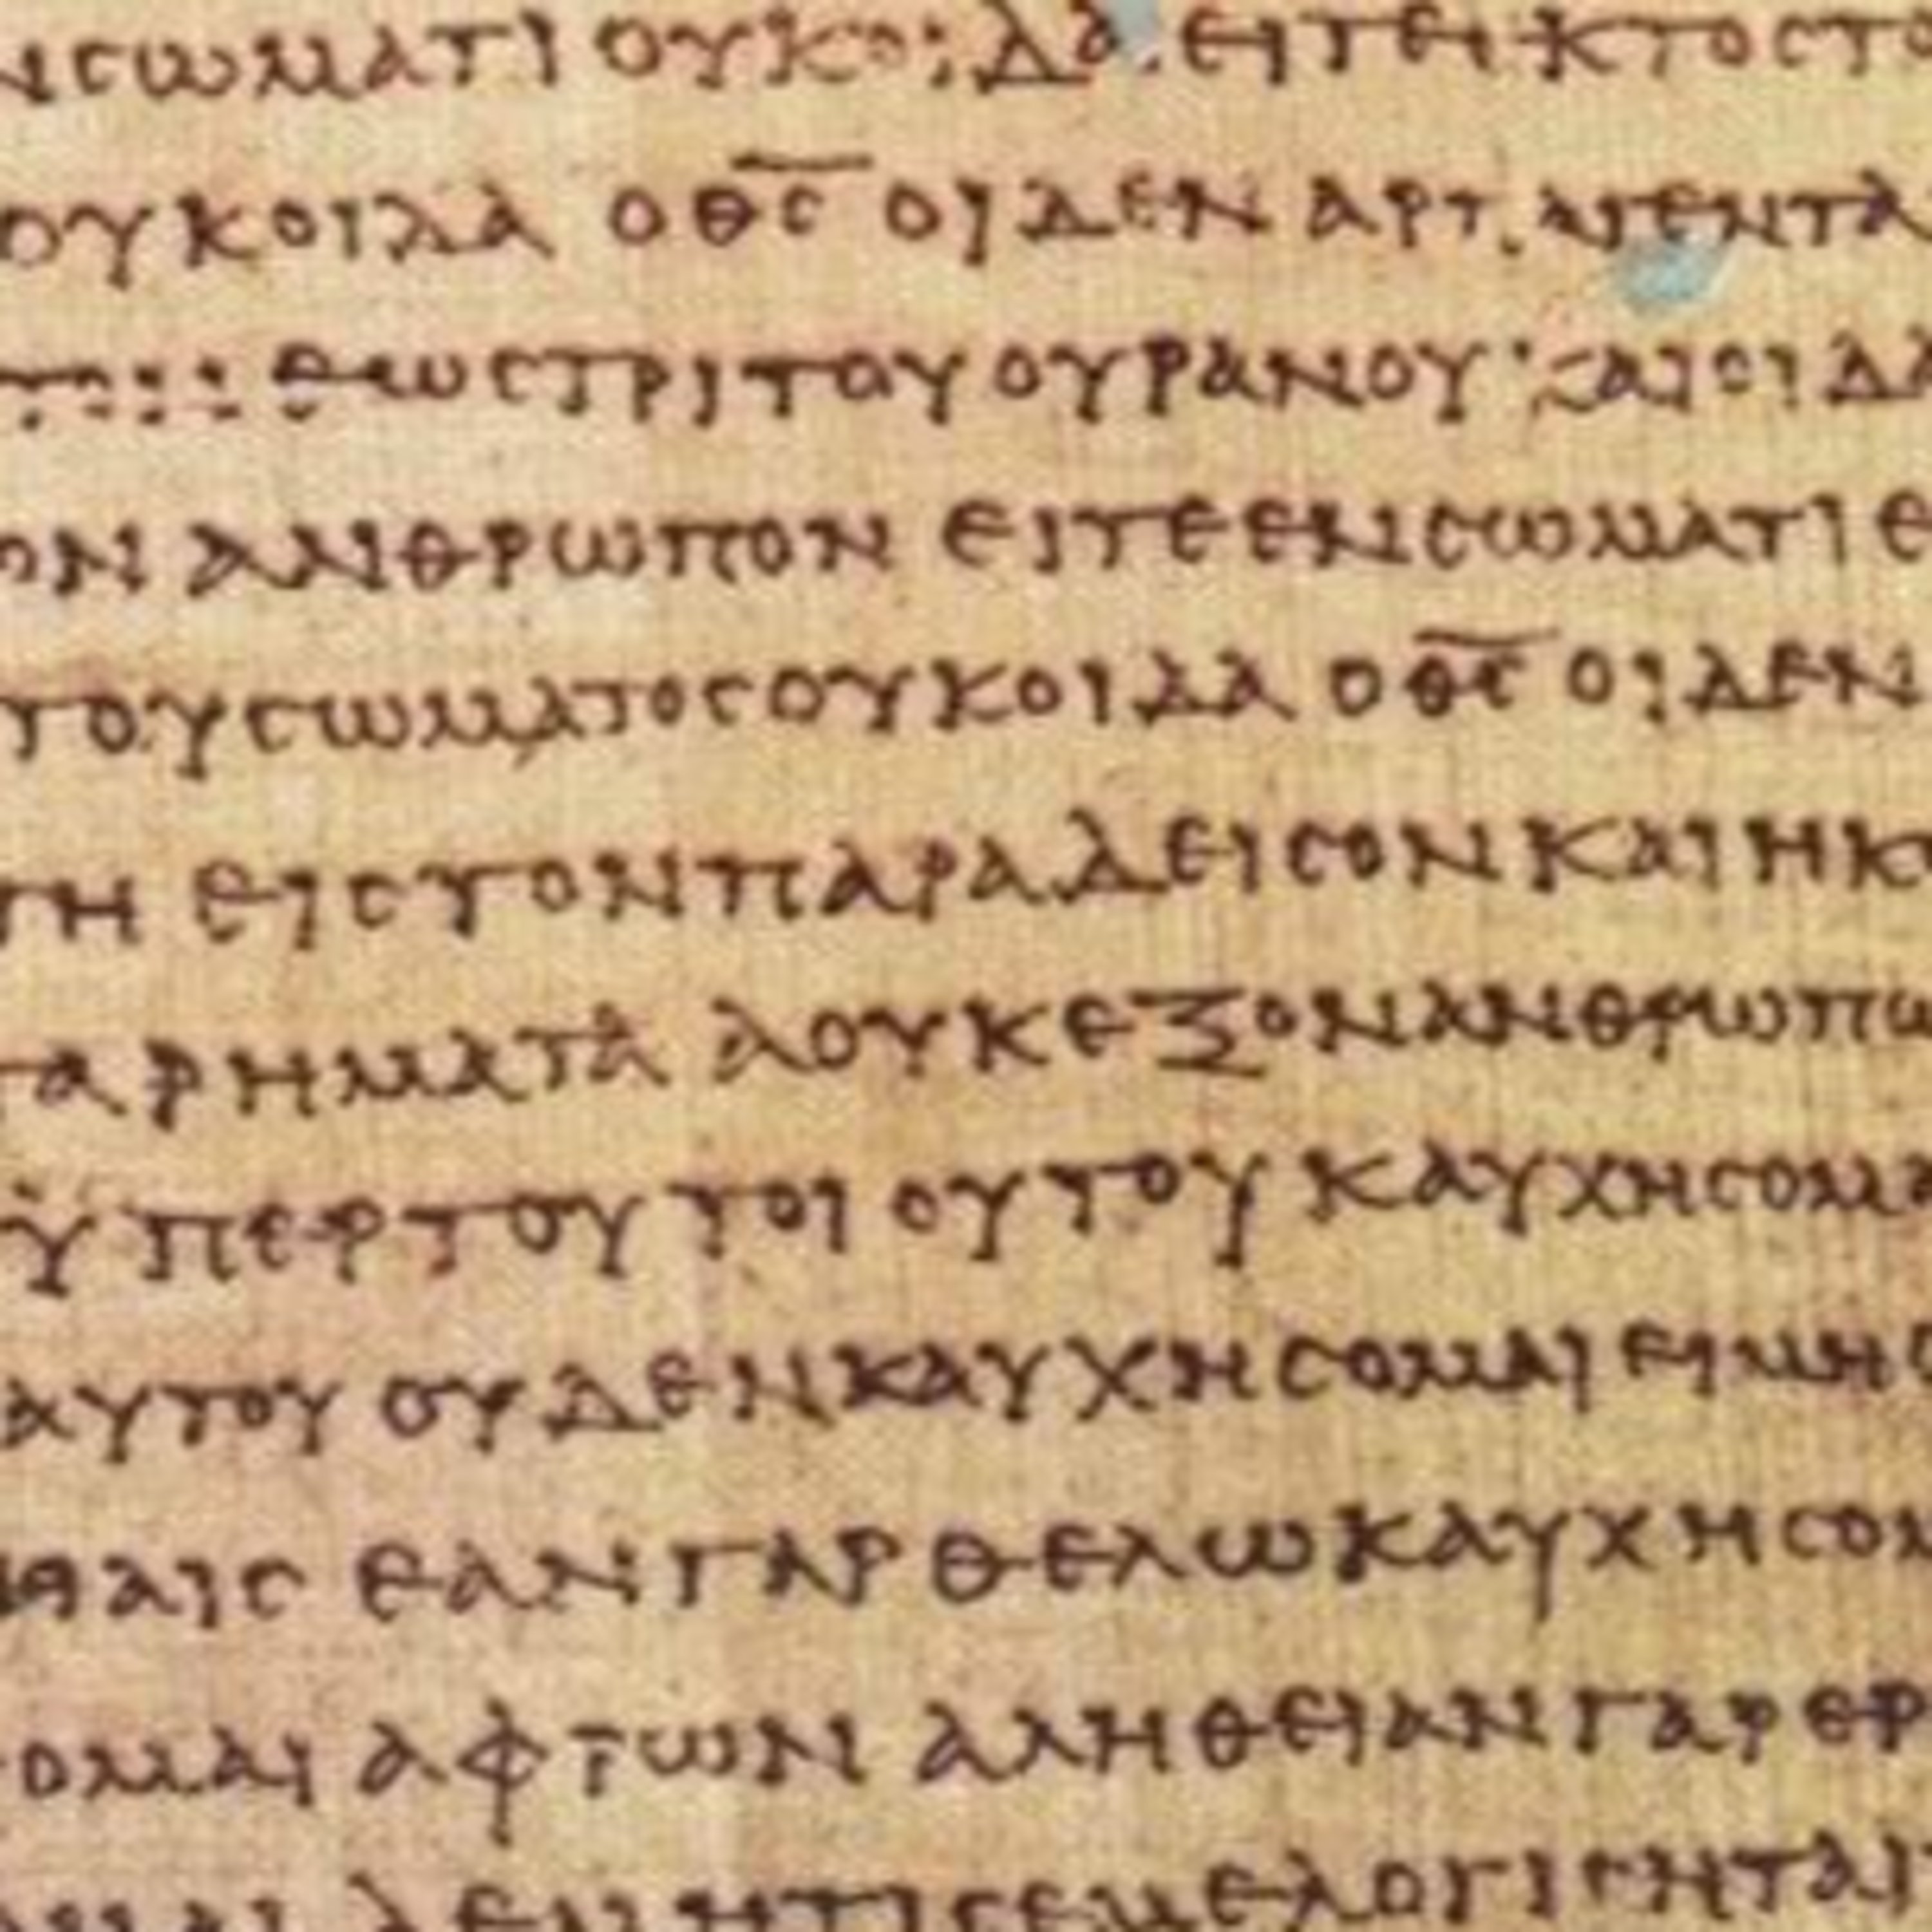 ΝϹΩΜΑΤΙ ΟΥΚ ΕΙΤΕ ΕΚΤΟϹ ΤΟ
ΟΥΚ ΟΙΔΑ Ο Θ̅Ϲ̅ ΟΙΔΕΝ ΑΡΠΑΓΕΝΤΑ
ΕΩϹ ΤΡΙΤΟΥ ΟΥΡΑΝΟΥ ΚΑΙ ΟΙΔΑ
ΟΝ ΑΝΘΡΩΠΟΝ ΕΙΤΕ ΕΝ ϹΩΜΑΤΙ Ε
ΤΟΥ ϹΩΜΑΤΟϹ ΟΥΚ ΟΙΔΑ Ο Θ̅Ϲ̅ ΟΙΔΕΝ
ΓΗ ΕΙϹ ΤΟΝ ΠΑΡΑΔΕΙϹΟΝ ΚΑΙ ΗΚ
ΤΑ ΡΗΜΑΤΑ Α ΟΥΚ ΕΞΟΝ ΑΝΘΡΩΠΩ
ΫΠΕΡ ΤΟΥ ΤΟΙΟΥΤΟΥ ΚΑΥΧΗϹΟΜΑ
ΑΥΤΟΥ ΟΥΔΕΝ ΚΑΥΧΗϹΟΜΑΙ ΕΙ ΜΗ
ΑΙϹ ΕΑΝ ΓΑΡ ΘΕΛΩ ΚΑΥΧΗϹΟΜ
ΟΜΑΙ ΑΦΡΩΝ ΑΛΗΘΕΙΑΝ ΓΑΡ ΕΡ
ΜΑΙ ΔΕ ΜΗ ΤΙϹ ΕΜΕ ΛΟΓΙϹΗΤΑΙ